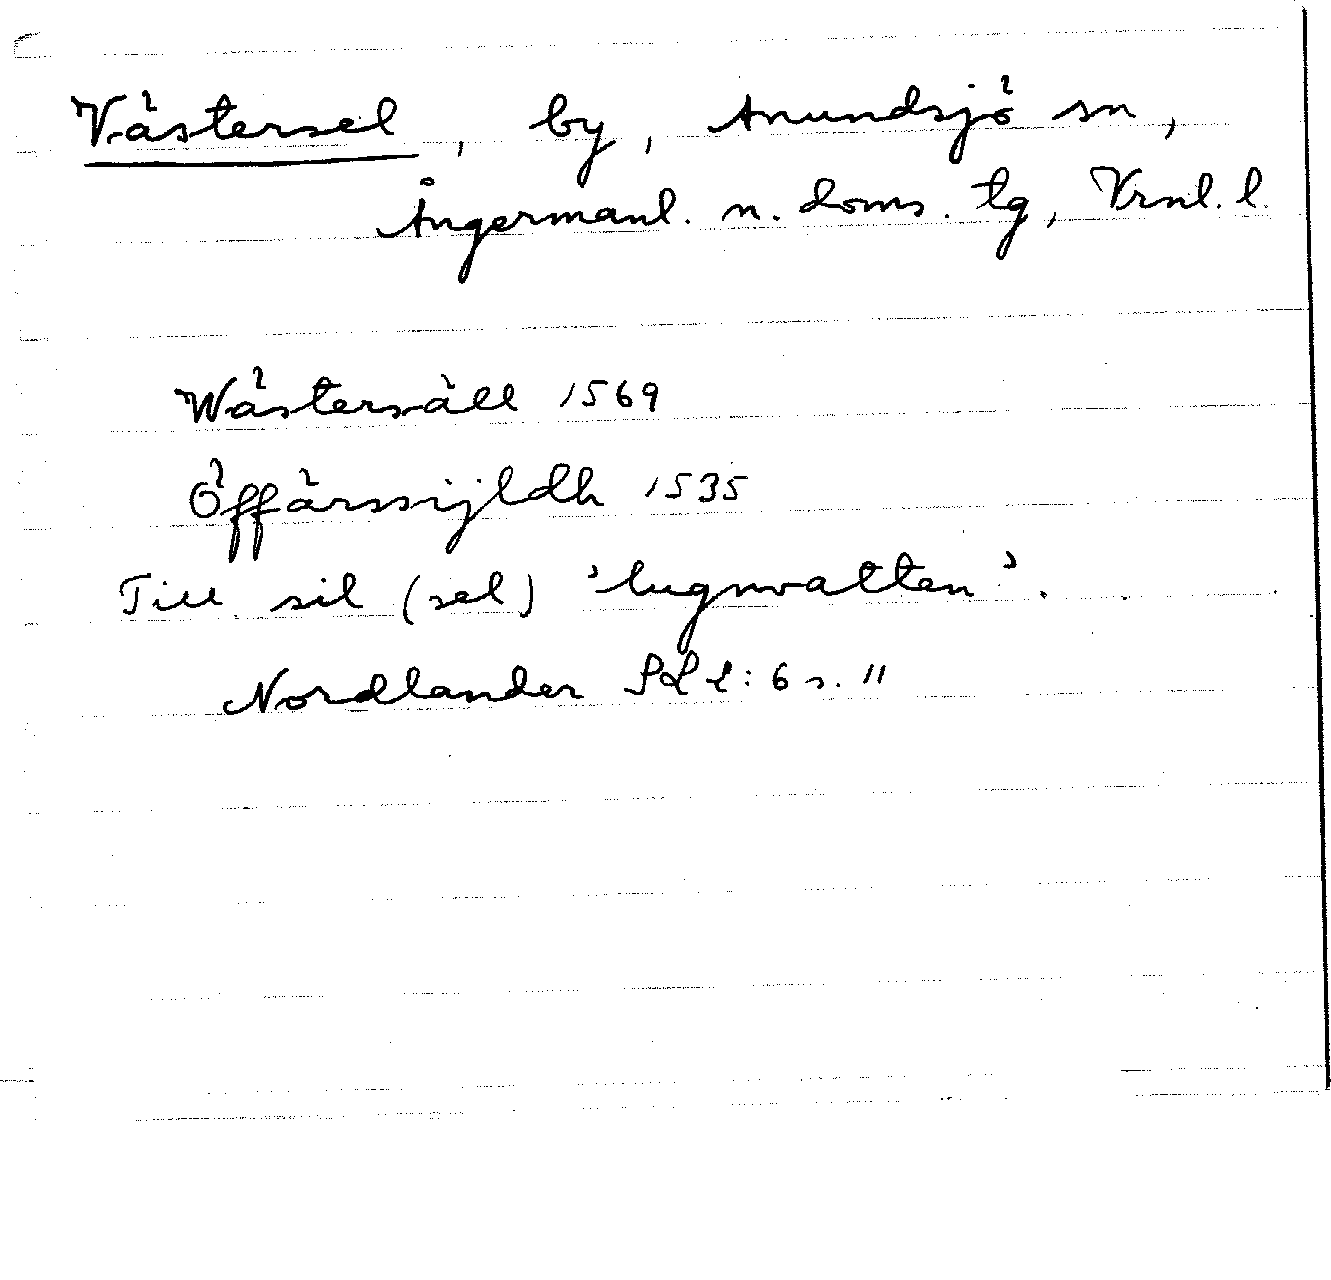 Västersel, by, Anundsjö sn,
Ångermanl. n. doms. tg, Vrnl. l.
Wästersäll 1569
Öffärssijldh 1535
Till sil (sel) 'lugnvatten'.
Nordlander : 6 s. 11